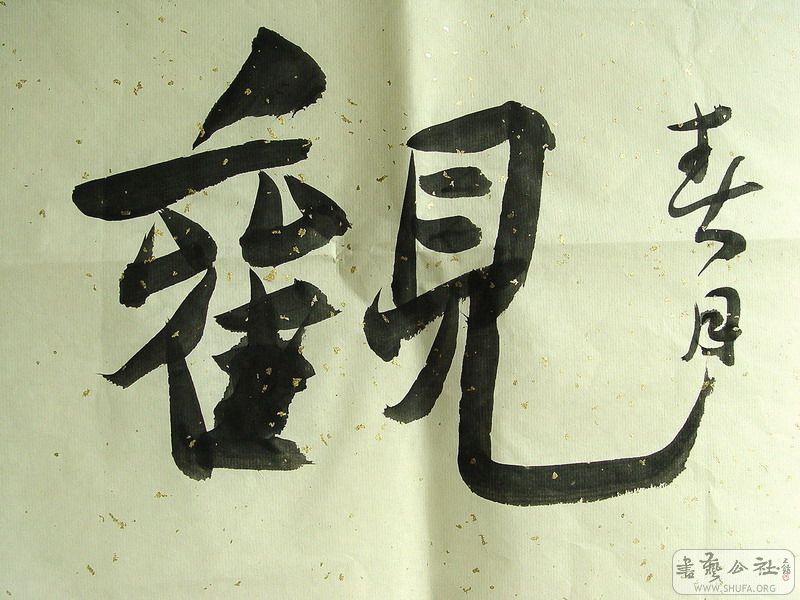 觀
春月
書藝公社
WWW.SHUFA.ORG